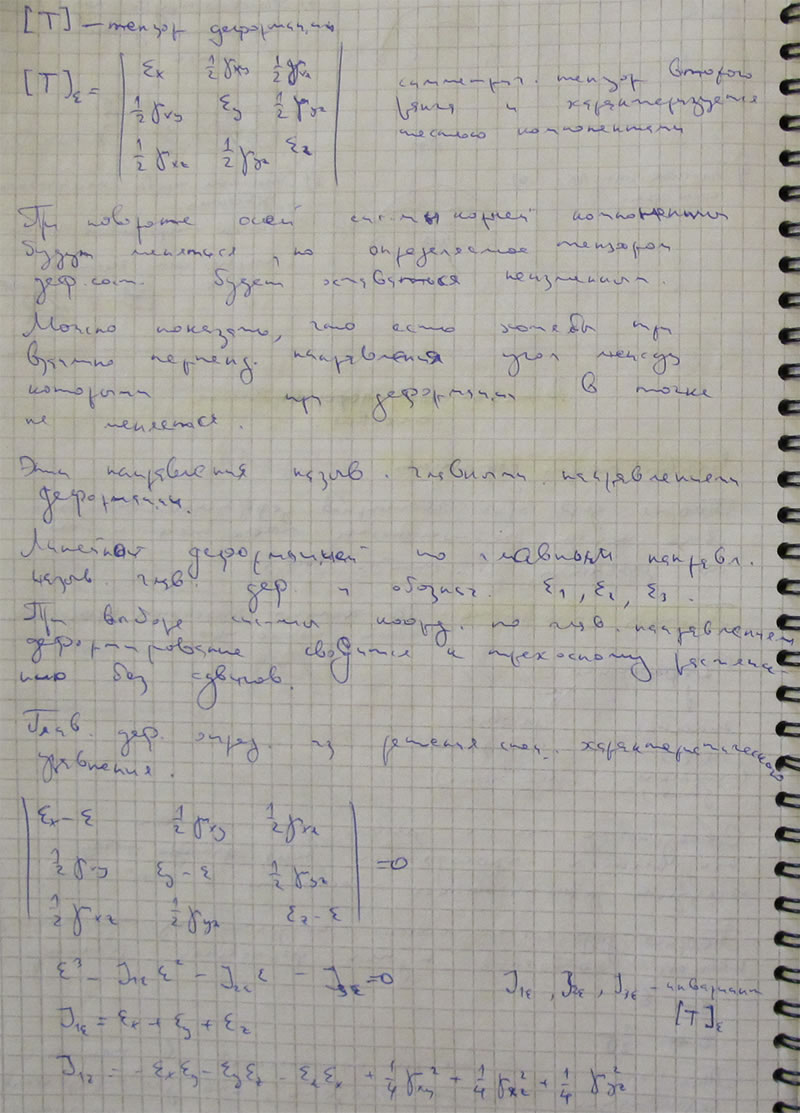 [T] – тензор деформации
[T]ε = | εx ½γxy ½γxz |
| ½γxy εy ½γyz |
| ½γxz ½γyz εz |
симметрич. тензор второго
ранга и характеризуется
шестью компонентами
При повороте осей сис-мы коорд. компоненты
будут меняться, но определяемое тензором
деф. сост. будет оставаться неизменным.
Можно показать, что есть хотябы три
взаимно перпенд. направления угол между
которыми при деформации в точке
не меняется.
Эти направления назыв. главными направлениями
деформации.
Линейной деформацией по главным направл.
назыв. глав. деф. и обознач. ε1, ε2, ε3.
При выборе сис-мы коорд. по глав. направлениям
деформирование сводится к трехосному растяже-
нию без сдвигов.
Глав. деф. опред. из решения характеристического
уравнения.
| εx – ε ½γxy ½γxz |
| ½γxy εy – ε ½γyz | = 0
| ½γxz ½γyz εz – ε |
ε³ – J1ε ε² – J2ε ε – J3ε = 0 J1ε, J2ε, J3ε – инвариант
[T]ε
J1ε = εx + εy + εz
J12 = – εxεy – εyεz – εzεx + ¼γxy² + ¼γxz² + ¼γyz²